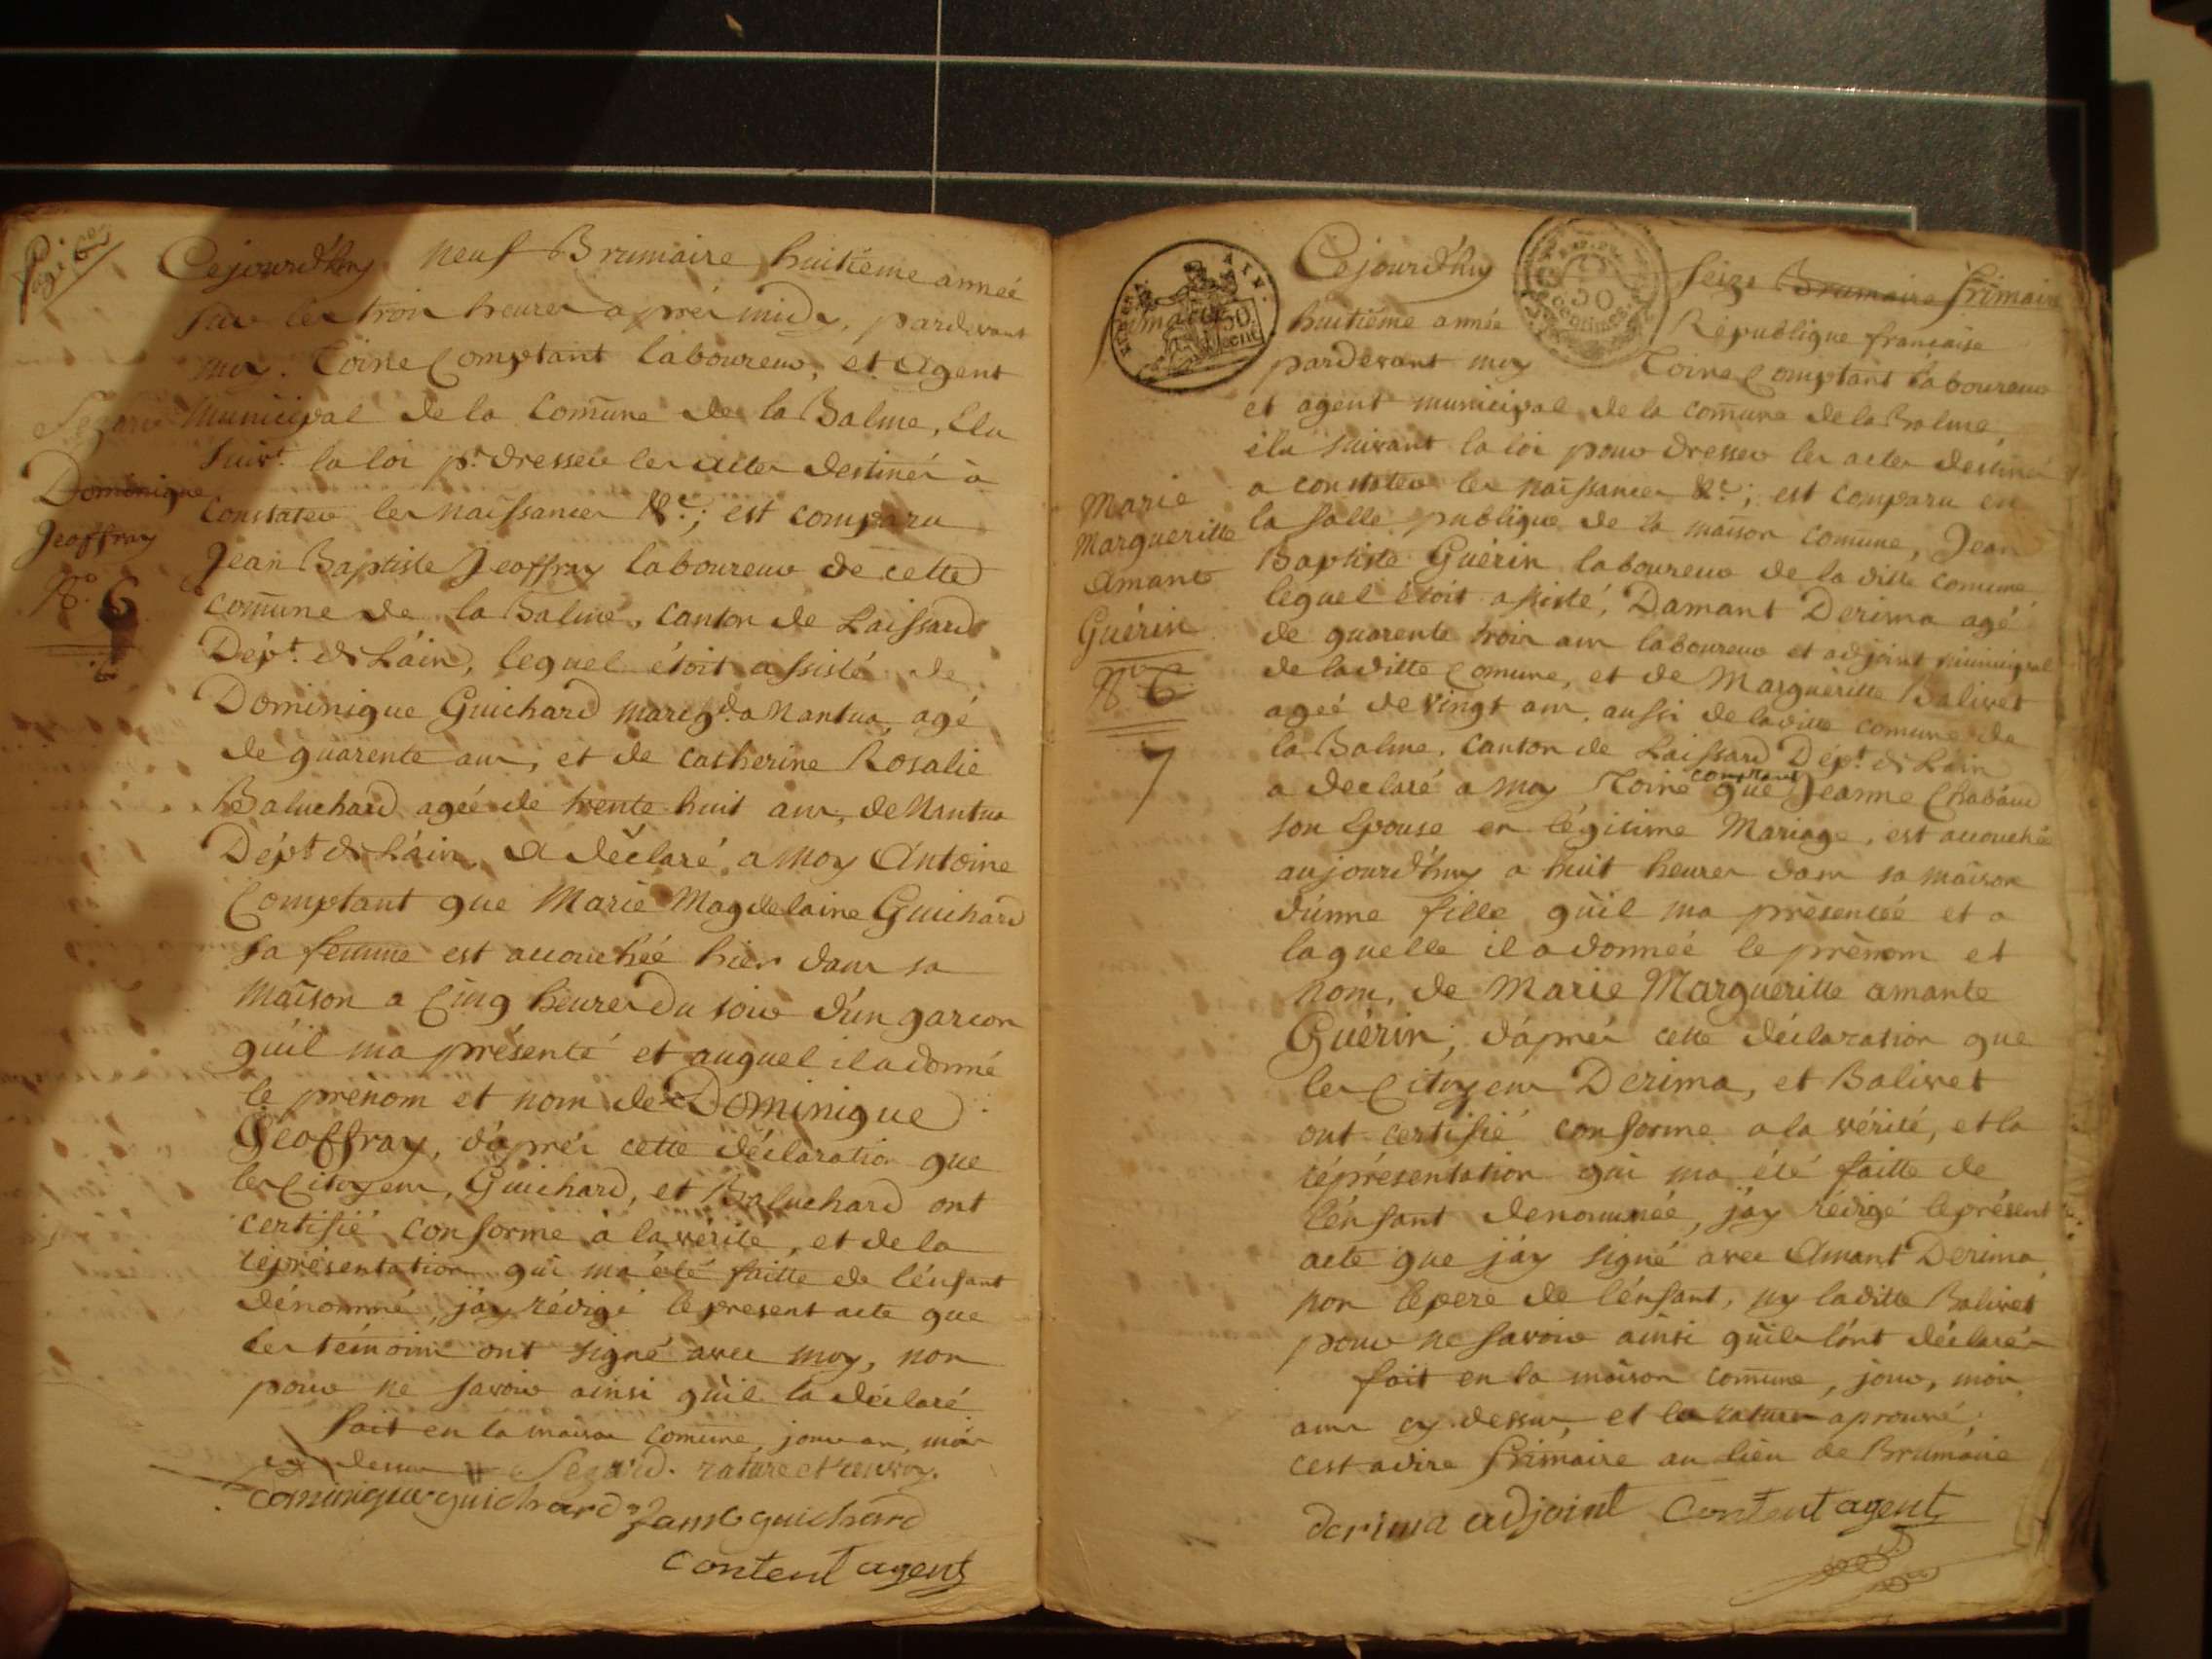 Page 6e
Cejourd'huy neuf Brumaire huitième année
sur les trois heures après midy, pardevant
moy Toine Comptant laboureur, et agent
municipal de la comune de la Balme, Elu
suivt. la loi pr. dresser les actes destinés à
constater les naissances &c; est comparu
Jean Baptiste Jeoffray laboureur de cette
comune de la Balme, canton de Laissard
Dépt. de Láin, lequel étoit assisté de
Dominique Guichard à Nantua, agé
de quarente ans, et de Catherine Rosalie
Baluchard agée de trente huit ans, de Nantua
Dépt. de Láin, a déclaré a moy Antoine
Comptant que Marie Magdelaine Guichard
sa femme est accouchée hier dans sa
maison a cinq heures du soir d'un garcon
qu'il ma présenté et auquel il a donné
le prénom et nom de Dominique
Géoffray, d'après cette déclaration que
les Citoyens, Guichard, et Baluchard ont
certifié conforme à la vérité, et de la
réprésentation qui ma été faitte de l'énfant
dénommé, j'ay rédigé le present acte que
les témoins ont signé avec moy, non
pour ne savoir ainsi qu'il la déclaré
fait en la maison comune, jour an, mois
cy dessus rature et renvoy.
dominique guichard guichard
Content agent
Dominique
Jeoffray
No. 6
6
Cejourd'huy seize Brumaire frimaire
huitième année République francaise
pardevant moy Toine Comptant laboureur
et agent municipal de la comune de la Balme,
élu suivant la loi pour dresser les actes destinés
a constater les naissances &c; est comparu en
la salle publique de la maison comune, Jean
Baptiste Guérin laboureur de la ditte comune
lequel étoit assisté, Damant Derima agé
de quarente trois ans laboureur et adjoint municipal
de la ditte Comune, et de Margueritte Balivet
ageé de vingt ans, aussi de la ditte comune de
la Balme, canton de Laissard Dépt. de Láin
a declaré a moy Toine comptant que Jeanne Chabaud
son Epouse en légitime Mariage, est accouchée
aujourd'huy a huit heures dans sa maison
d'unne fille qu'il ma présentée et a
laquelle il a donneé le prénom et
nom, de Marie Margueritte amante
Guérin; d'après cette déclaration que
les Citoyens Derima, et Balivet
ont certifié conforme a la vérité, et la
réprésentation qui ma été faitte de
l'énfant denommée, j'ay rédigé le présent
acte que j'ay signé avec Amant Derima
non lepere de l'énfant, ny laditte Balivet
pour ne savoir ainsi qu'ils l'ont déclarés
fait en la maison comune, jour, mois,
ans cy dessus, et la rature aprouvé;
cest adire frimaire au lieu de Brumaire
derima adjoint Content agent
Marie
Margueritte
Amante
Guérin
No. 6
7
AIN.
50
cent
50
Centimes